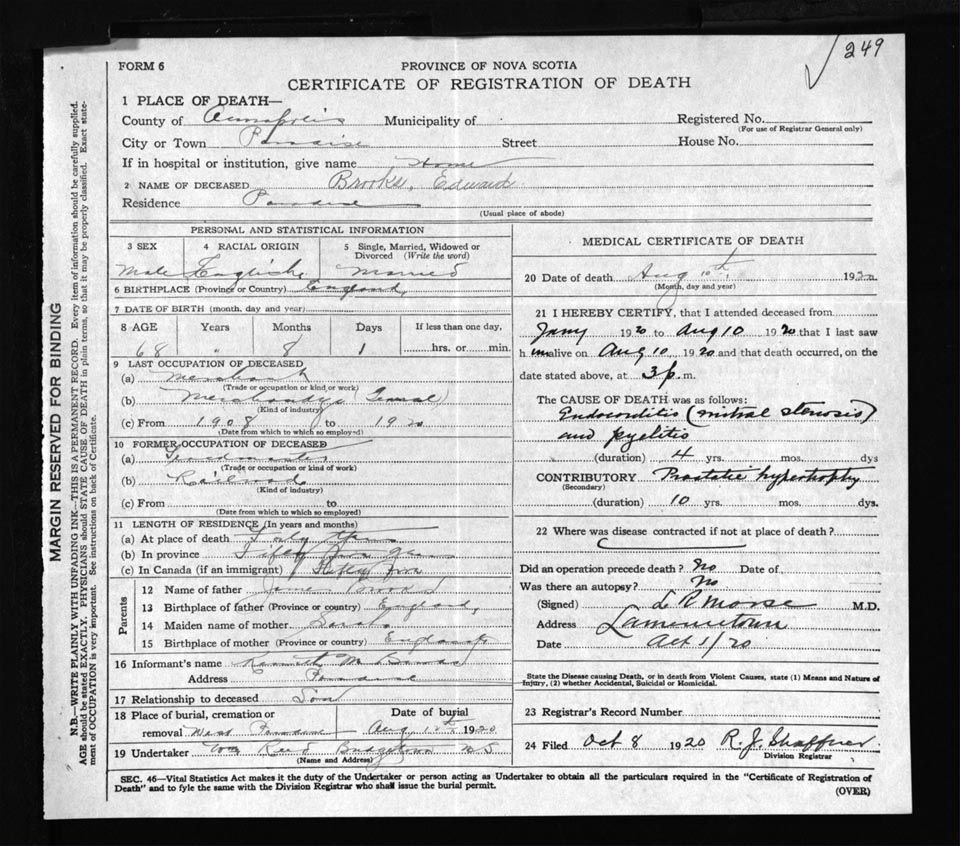 249
FORM 6
PROVINCE OF NOVA SCOTIA
CERTIFICATE OF REGISTRATION OF DEATH
1 PLACE OF DEATH—
County of Annapolis Municipality of Registered No.
(For use of Registrar General only)
City or Town Paradise Street House No.
If in hospital or institution, give name Home
2 NAME OF DECEASED Brooks, Edward
Residence Paradise
(Usual place of abode)
PERSONAL AND STATISTICAL INFORMATION
3 SEX 4 RACIAL ORIGIN 5 Single, Married, Widowed or
Divorced (Write the word)
Male English Married
6 BIRTHPLACE (Province or Country) England
7 DATE OF BIRTH (month, day and year)
8 AGE Years Months Days If less than one day,
68 " 8 1 hrs. or min.
9 LAST OCCUPATION OF DECEASED
(a) Merchant
(Trade or occupation or kind or work)
(b) (General)
(Kind of industry)
(c) From 1908 to 1920
(Date from which to which so employed)
10 FORMER OCCUPATION OF DECEASED
(a)
(Trade or occupation or kind of work)
(b) Railroad
(Kind of industry)
(c) From to
(Date from which to which so employed)
11 LENGTH OF RESIDENCE (In years and months)
(a) At place of death Forty
(b) In province Fifty
(c) In Canada (if an immigrant) Fifty
Parents
12 Name of father
13 Birthplace of father (Province or country) England,
14 Maiden name of mother Sarah
15 Birthplace of mother (Province or country) England
16 Informant's name Kenneth M.
Address Paradise
17 Relationship to deceased Son
18 Place of burial, cremation or Date of burial
removal West Paradise Aug 1920
19 Undertaker Reed Bridgetown N S
(Name and Address)
MEDICAL CERTIFICATE OF DEATH
20 Date of death Aug 10th, 1920
(Month, day and year)
21 I HEREBY CERTIFY, that I attended deceased from
Jany 1920 to Aug 10 1920 that I last saw
him alive on Aug 10 1920 and that death occurred, on the
date stated above, at 3 p.m.
The CAUSE OF DEATH was as follows:
Endocarditis (mitral stenosis)
and pyelitis
(duration) 4 yrs. mos. dys
CONTRIBUTORY Prostatic hypertrophy
(Secondary)
(duration) 10 yrs. mos. dys.
22 Where was disease contracted if not at place of death?
Did an operation precede death? No Date of
Was there an autopsy? No
(Signed) L R Morse M.D.
Address Lawrencetown
Date Oct 1/20
State the Disease causing Death, or in death from Violent Causes, state (1) Means and Nature of
Injury, (2) whether Accidental, Suicidal or Homicidal.
23 Registrar's Record Number
24 Filed Oct 8 1920 R. J. Shaffner
Division Registrar
SEC. 46—Vital Statistics Act makes it the duty of the Undertaker or person acting as Undertaker to obtain all the particulars required in the "Certificate of Registration of
Death" and to fyle the same with the Division Registrar who shall issue the burial permit.
(OVER)
MARGIN RESERVED FOR BINDING
N.B.—WRITE PLAINLY WITH UNFADING INK—THIS IS A PERMANENT RECORD. Every item of information should be carefully supplied.
AGE should be stated EXACTLY. PHYSICIANS should STATE CAUSE OF DEATH in plain terms, so that it may be properly classified. Exact state-
ment of OCCUPATION is very important. See instructions on back of Certificate.